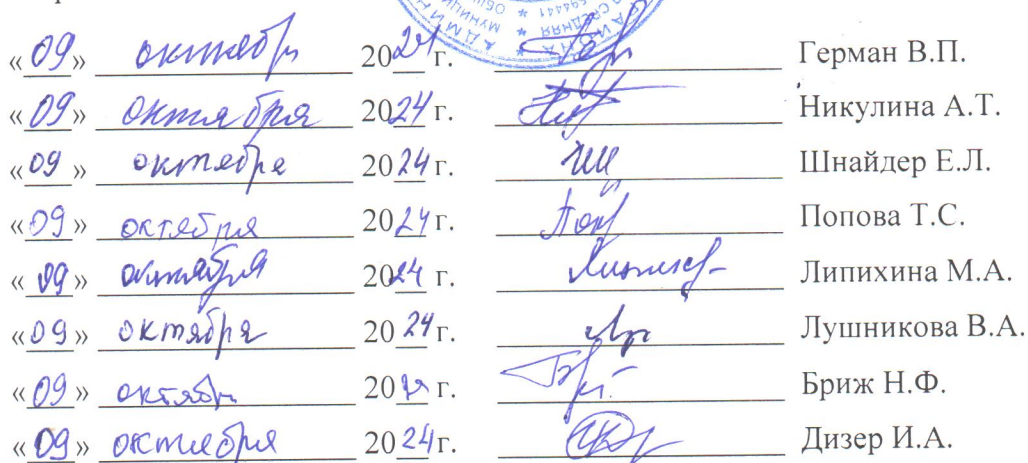 «09» октября 2024 г. Герман В.П.
«09» октября 2024 г. Никулина А.Т.
«09» октября 2024 г. Шнайдер Е.Л.
«09» октября 2024 г. Попова Т.С.
«09» октября 2024 г. Липихина М.А.
«09» октября 2024 г. Лушникова В.А.
«09» октября 2024 г. Бриж Н.Ф.
«09» октября 2024 г. Дизер И.А.